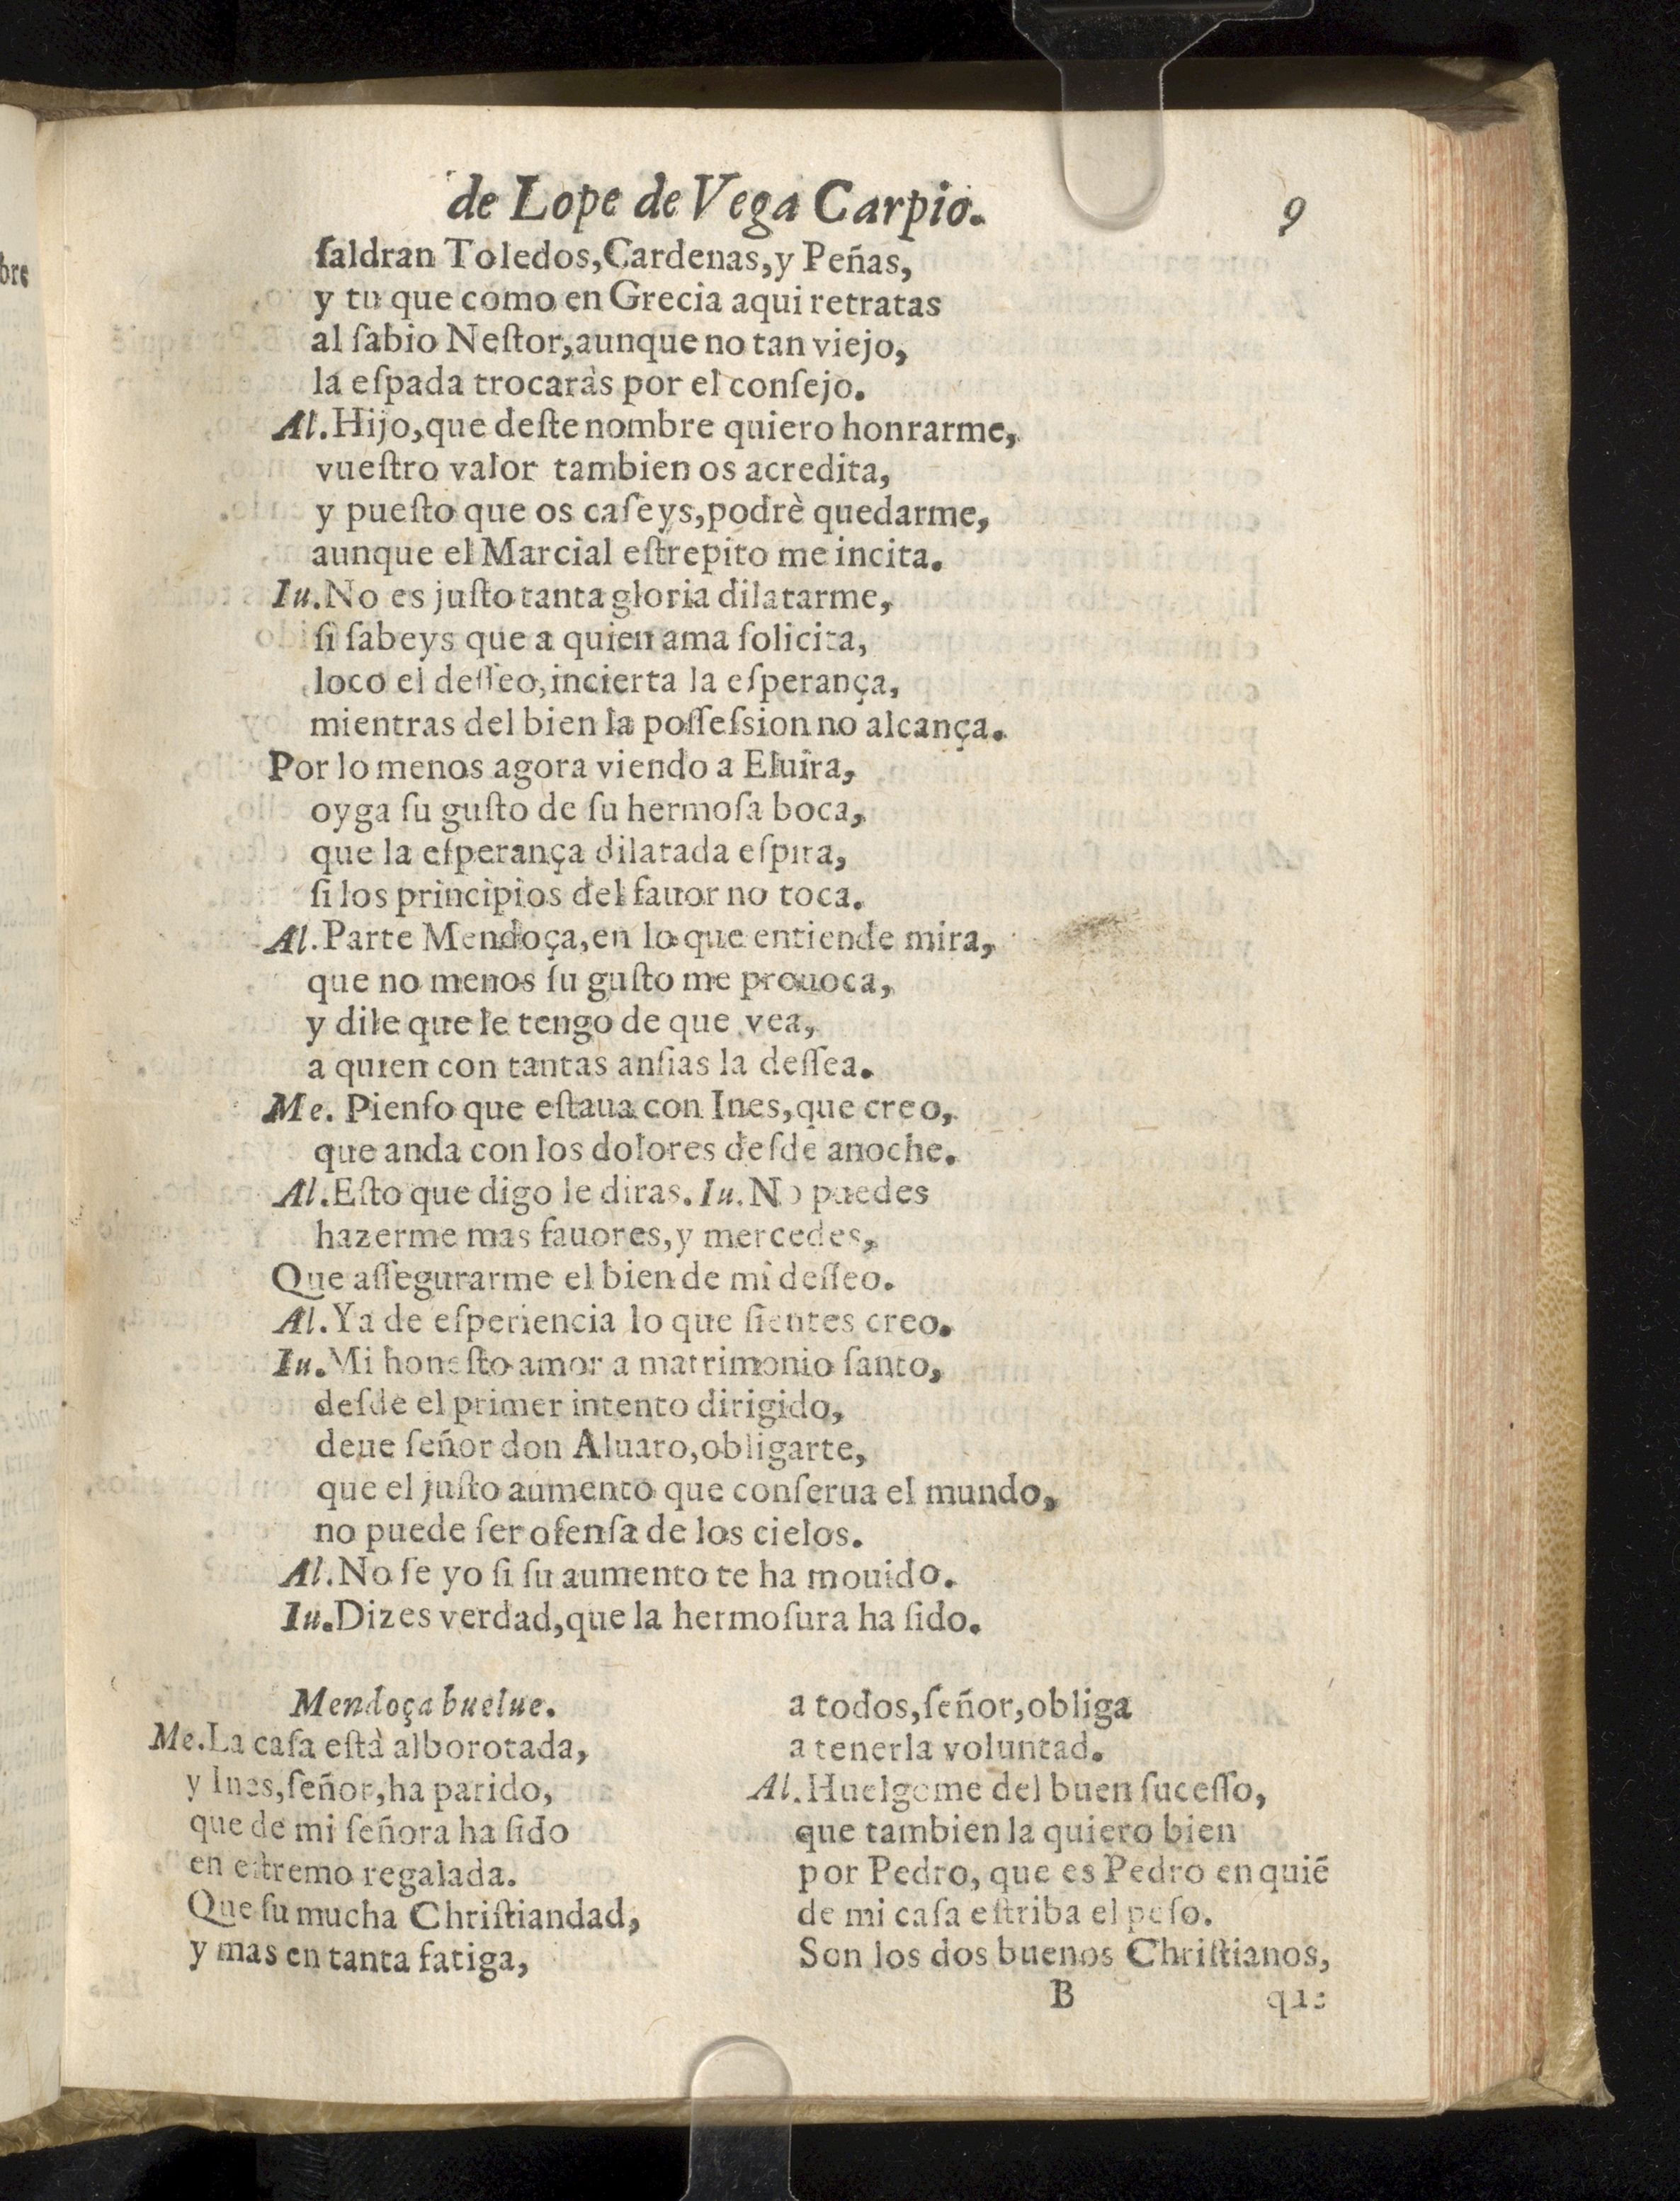 de Lope de Vega Carpio. 9
ſaldran Toledos, Cardenas, y Peñas,
y tu que como en Grecia aqui retratas
al ſabio Neſtor, aunque no tan viejo,
la eſpada trocaràs por el conſejo.
Al. Hijo, que deſte nombre quiero honrarme,
vueſtro valor tambien os acredita,
y pueſto que os caſeys, podrè quedarme,
aunque el Marcial eſtrepito me incita.
Iu. No es juſto tanta gloria dilatarme,
ſi ſabeys que a quien ama ſolicita,
loco el deſſeo, incierta la eſperança,
mientras del bien la poſſeſsion no alcança.
Por lo menos agora viendo a Eluira,
oyga ſu guſto de ſu hermoſa boca,
que la eſperança dilatada eſpira,
ſi los principios del fauor no toca.
Al. Parte Mendoça, en lo que entiende mira,
que no menos ſu guſto me prouoca,
y dile que le tengo de que vea,
a quien con tantas anſias la deſſea.
Me. Pienſo que eſtaua con Ines, que creo,
que anda con los dolores deſde anoche.
Al. Eſto que digo le diras. Iu. No puedes
hazerme mas fauores, y mercedes,
Que aſſegurarme el bien de mi deſſeo.
Al. Ya de eſperiencia lo que ſientes creo.
Iu. Mi honeſto amor a matrimonio ſanto,
deſde el primer intento dirigido,
deue ſeñor don Aluaro, obligarte,
que el juſto aumento que conſerua el mundo,
no puede ſer ofenſa de los cielos.
Al. No ſe yo ſi ſu aumento te ha mouido.
Iu. Dizes verdad, que la hermoſura ha ſido.
Mendoça buelue.
Me. La caſa eſtà alborotada,
y Ines, ſeñor, ha parido,
que de mi ſeñora ha ſido
en eſtremo regalada.
Que ſu mucha Chriſtiandad,
y mas en tanta fatiga,
a todos, ſeñor, obliga
a tenerla voluntad.
Al. Huelgome del buen ſuceſſo,
que tambien la quiero bien
por Pedro, que es Pedro en quiē
de mi caſa eſtriba el peſo.
Son los dos buenos Chriſtianos,
B que